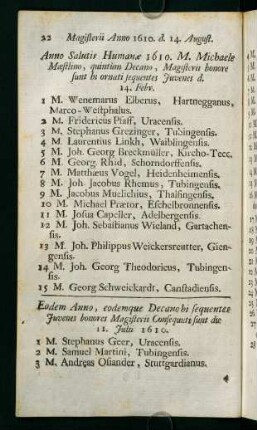 22 Magisterii Anno 1610. d. 14. August.
Anno Salutis Humanæ 1610. M. Michaele
Mæstlino, quintùm Decano, Magisterii honore
sunt hi ornati sequentes Juvenes d.
14. Febr.
1 M. Wenemarus Elberus, Hartnegganus,
Marco-Westphalus.
2 M. Fridericus Pfaff, Uracensis.
3 M. Stephanus Grezinger, Tubingensis.
4 M. Laurentius Linkh, Waiblingensis.
5 M. Joh. Georg Breckmüller, Kircho-Tecc.
6 M. Georg Rhid, Schorndorffensis.
7 M. Matthæus Vogel, Heidenheimensis.
8 M. Joh Jacobus Rhemus, Tubingensis.
9 M. Jacobus Muelichius, Thalfingensis.
10 M. Michael Prætor, Eschelbronnensis.
11 M. Josua Capeller, Adelbergensis.
12 M. Joh. Sebastianus Wieland, Gartachen-
sis.
13 M. Joh. Philippus Weickersreutter, Gien-
gensis.
14 M. Joh. Georg Theodoricus, Tubingen-
sis.
15 M. Georg Schweickardt, Canstadiensis.
Eodem Anno, eodemque Decano hi sequentes
Juvenes honores Magisterii Consequuti sunt die
11. Julii 1610.
1 M. Stephanus Geer, Uracensis.
2 M. Samuel Martini, Tubingensis.
3 M. Andreas Osiander, Stuttgardianus.
4